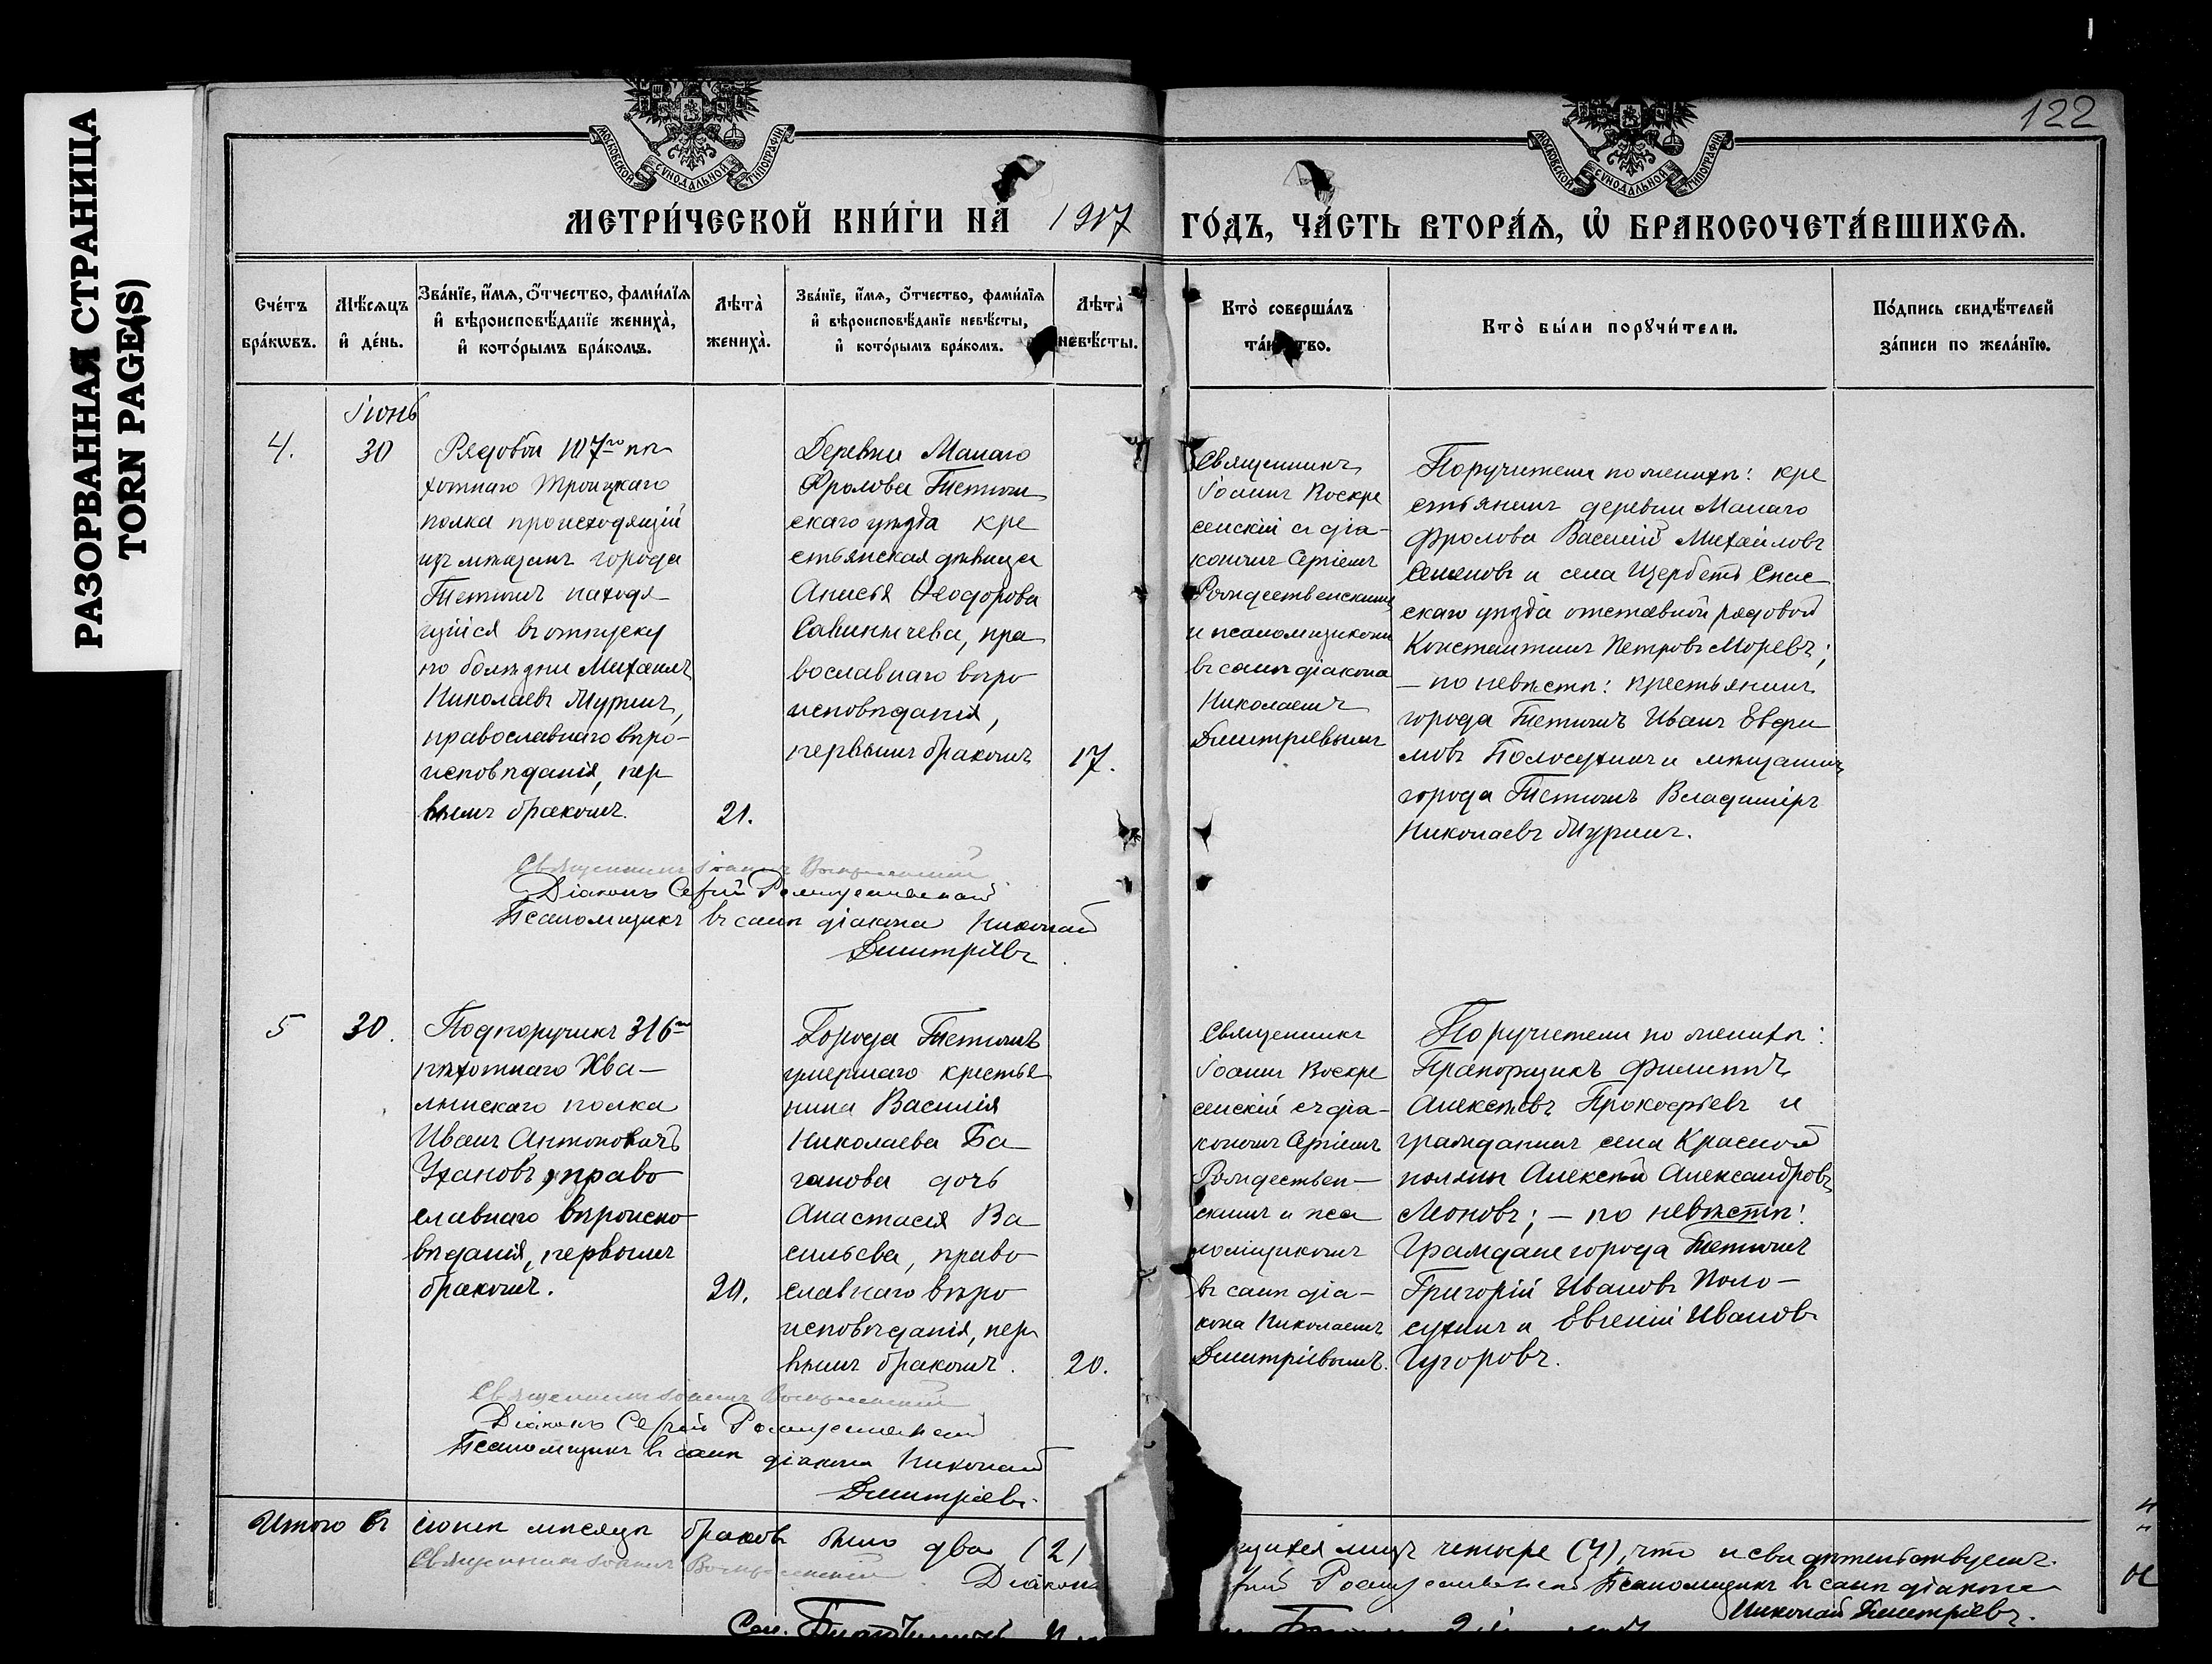 РАЗОРВАННАЯ СТРАНИЦА
TORN PAGE(S)
122
МОСКОВСКОЙ СУНОДАЛЬНОЙ ТИПОГРАФІИ
МОСКОВСКОЙ СУНОДАЛЬНОЙ ТИПОГРАФІИ
МЕТРИ́ЧЕСКОЙ КНИ́ГИ НА 1917 ГО́ДЪ, ЧА́СТЬ ВТОРА́Ѧ, Ѽ БРАКОСОЧЕТА́ВШИХСѦ.
Сче́тъ
бра́кѡвъ.
Мѣ́сѧцъ
и҆ де́нь.
Зва́нїе, и҆́мѧ, ѻ҆́тчество, фами́лїѧ
и҆ вѣроисповѣ́данїе жениха̀,
и҆ кото́рымъ бра́комъ.
Лѣта̀
жениха̀.
Зва́нїе, и҆́мѧ, ѻ҆́тчество, фами́лїѧ
и҆ вѣроисповѣ́данїе невѣ́сты,
и҆ кото́рымъ бра́комъ.
Лѣта̀
невѣ́сты.
Кто̀ соверша́лъ
та́инство.
Кто̀ бы́ли порꙋчи́тели.
По́дпись свидѣ́телей
за́писи по жела́нїю.
Іюнь
4.
30
Рядовой 107го пѣ
хотнаго Троицкаго
полка происходящій
изъ мѣщанъ города
Тетюшъ находя
щійся въ отпуску
по болѣзни Михаилъ
Николаевъ Муринъ,
православнаго вѣро-
исповѣданія, пер
вымъ бракомъ.
21.
Деревни Малаго
Фролова Тетюш
скаго уѣзда кре
стьянская дѣвица
Анисья Ѳеодорова
Савинычева, пра
вославнаго вѣро
исповѣданія,
первымъ бракомъ
17.
Священникъ
Іоаннъ Воскре
сенскій съ діа-
кономъ Сергіемъ
Рождественскимъ
и псаломщикомъ
въ санѣ діакона
Николаемъ
Дмитріевымъ
Поручители по женихѣ: кре
стьянинъ деревни Малаго
Фролова Василій Михайловъ
Семеновъ и села Щербеть Спас
скаго уѣзда отставной рядовой
Константинъ Петровъ Моревъ;
— по невѣстѣ: крестьянинъ
города Тетюшъ Иванъ Евфи
мовъ Полосухинъ и мѣщанинъ
города Тетюшъ Владиміръ
Николаевъ Муринъ.
Священникъ Іоаннъ Воскресенскій
Діаконъ Сергій Рождественскій
Псаломщикъ въ санѣ діакона Николай
Дмитріевъ
5
30.
Подпоручикъ 316го
пѣхотнаго Хва-
лынскаго полка
Иванъ Антоновичъ
Ухановъ, право
славнаго вѣроиспо
вѣданія, первымъ
бракомъ.
20.
Города Тетюшъ
умершаго крестья
нина Василія
Николаева Ба
ганова дочь
Анастасія Ва
сильева, право
славнаго вѣро
исповѣданія, пер
вымъ бракомъ.
20.
Священникъ
Іоаннъ Воскре
сенскій съ діа-
кономъ Сергіемъ
Рождествен-
скимъ и пса
ломщикомъ
въ санѣ діа-
кона Николаемъ
Дмитріевымъ.
Поручители по женихѣ:
Прапорщикъ Филиппъ
Алексѣевъ Прокофьевъ и
гражданинъ села Красной
поляны Алексѣй Александровъ
Леоновъ; — по невѣстѣ:
Граждане города Тетюшъ
Григорій Ивановъ Поло-
сухинъ и Евгеній Ивановъ
Чугоровъ.
Священникъ Іоаннъ Воскресенскій
Діаконъ Сергій Рождественскій
Псаломщикъ въ санѣ діакона Николай
Дмитріевъ.
Итого въ іюнѣ мѣсяцѣ браковъ было два (2)
щихся лицъ четыре (4), что и свидѣтельствуемъ.
Священникъ Іоаннъ Воскресенскій Діаконъ
гій Рождественскій Псаломщикъ въ санѣ діакона
Николай Дмитріевъ.